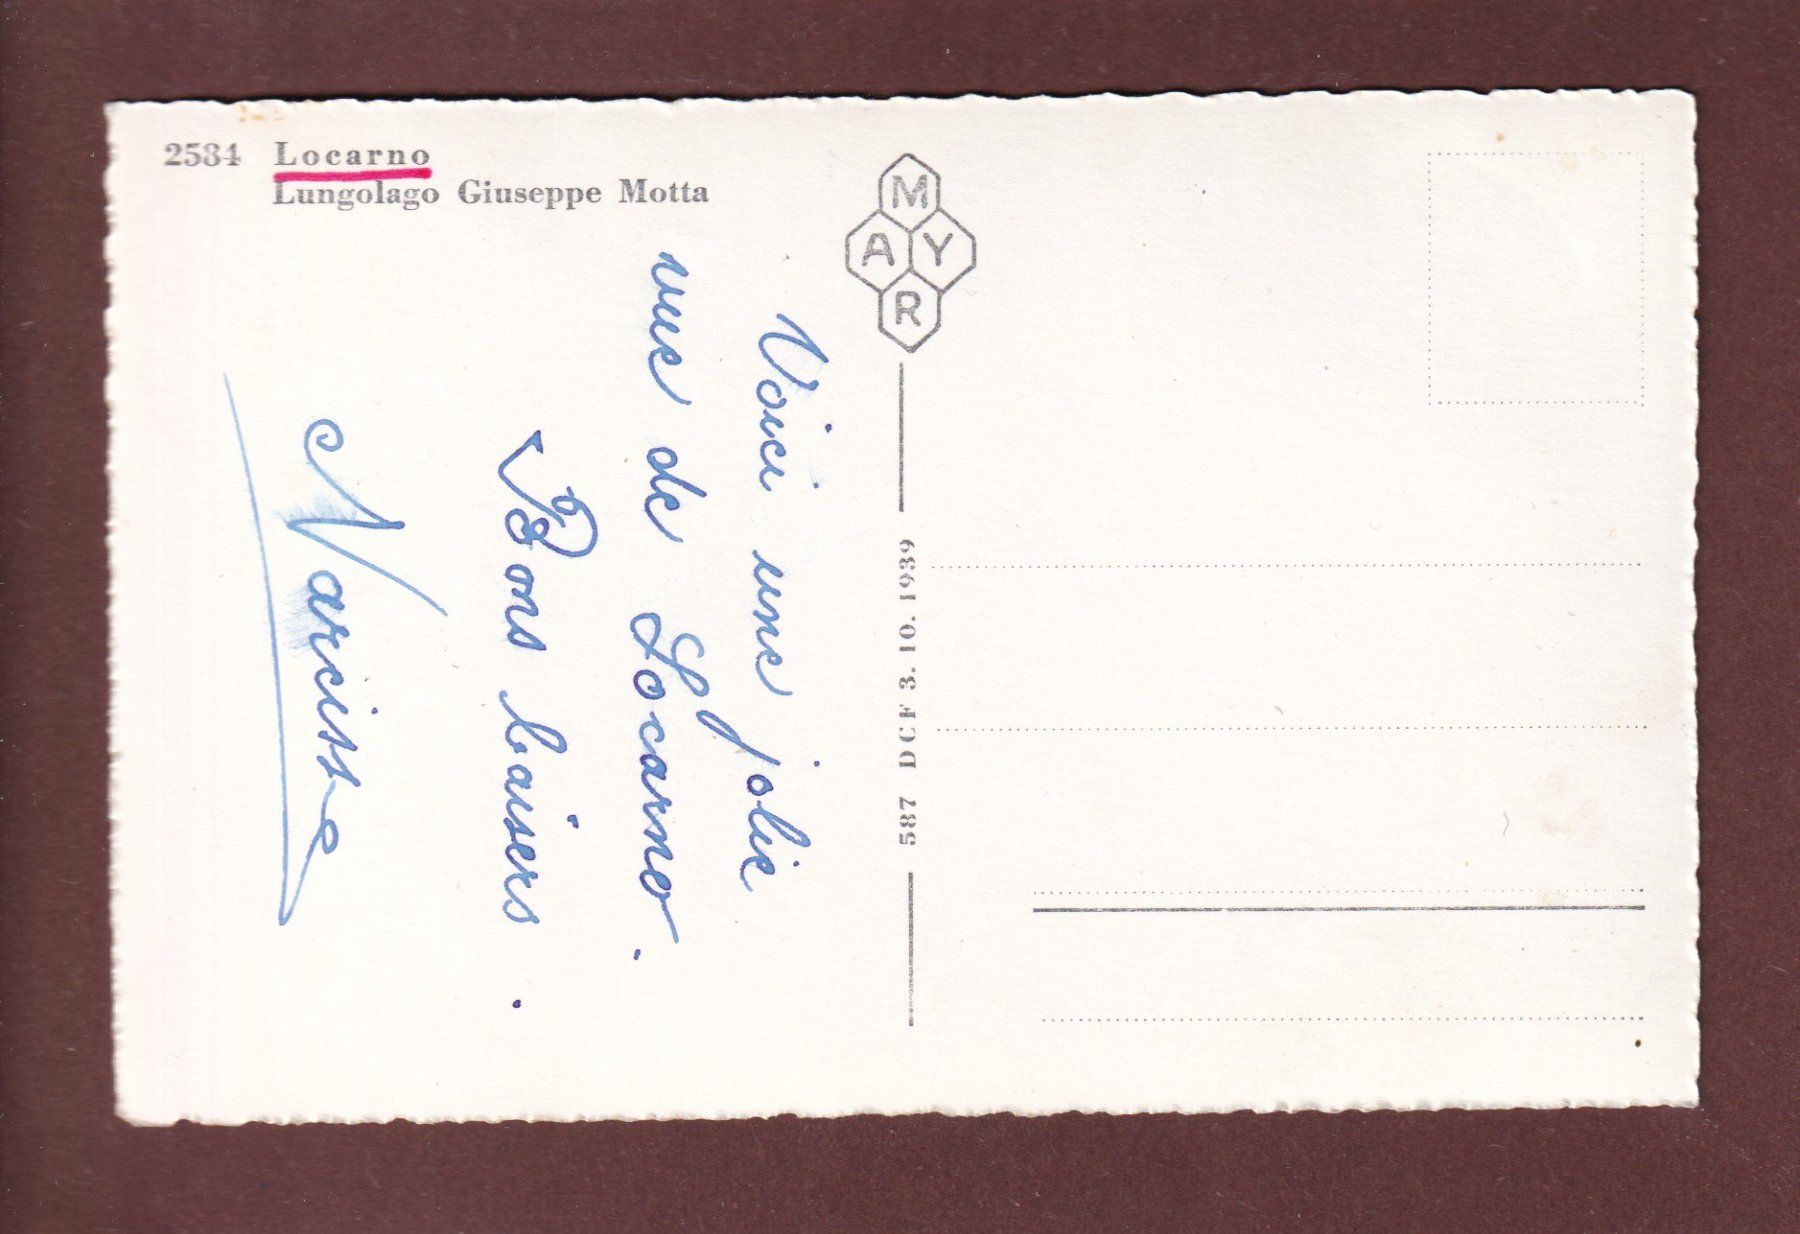 2584 Locarno
Lungolago Giuseppe Motta
Voici une jolie
vue de Locarno.
Bons baisers.
Narcisse
M
A Y
R
587 DCF 3.10.1939